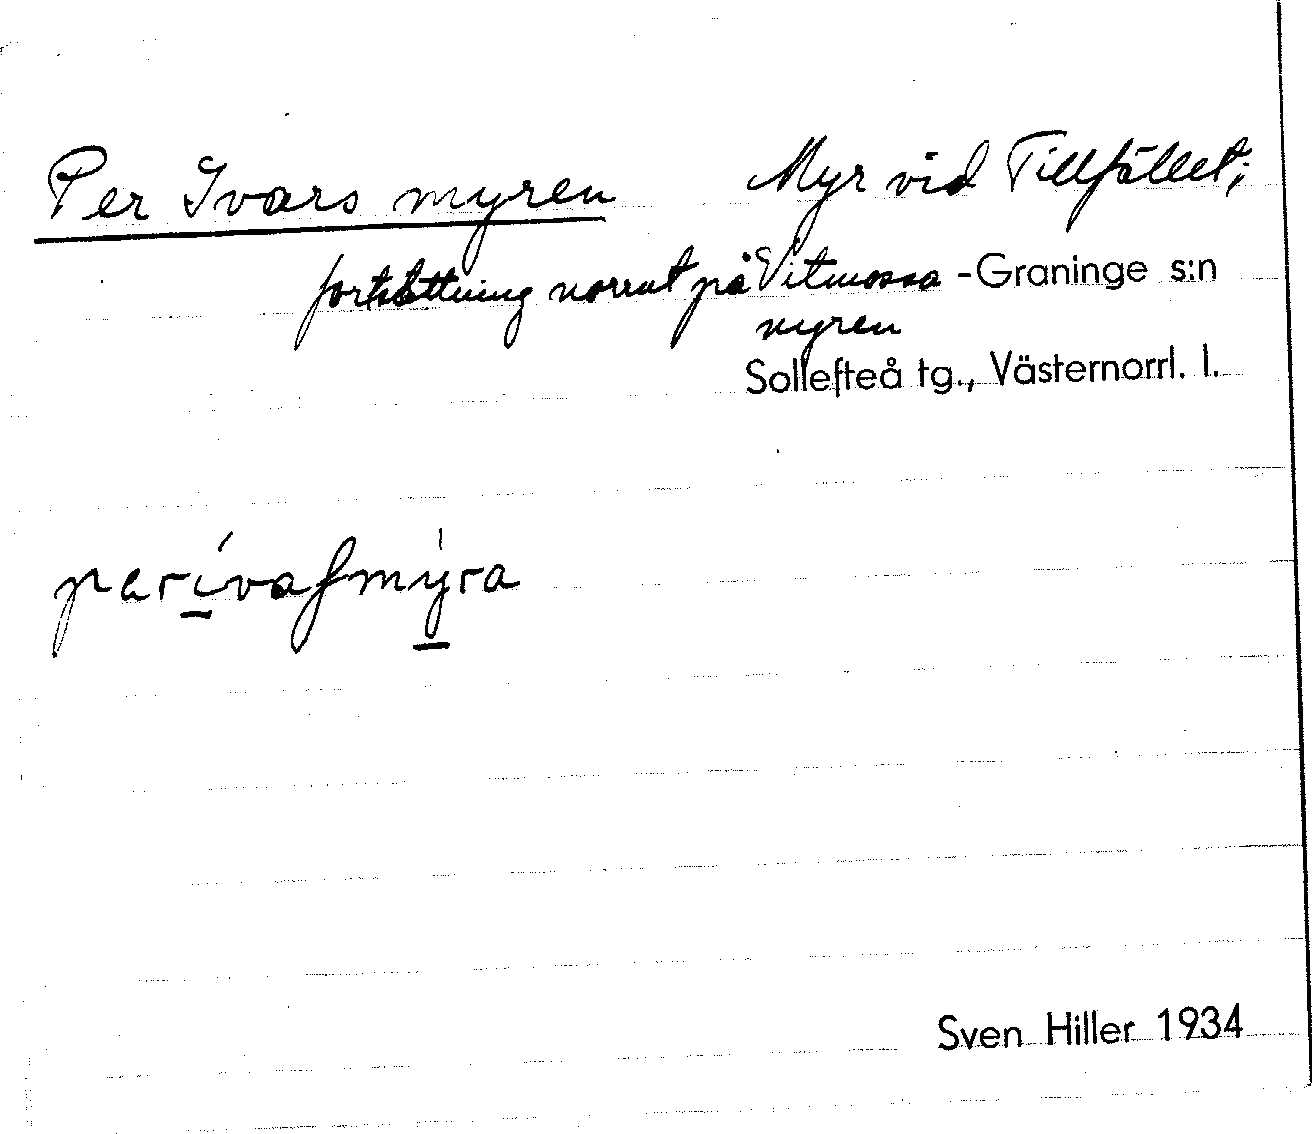 Per Ivars myren Myr vid Tillfället;
fortsättning norrut på Vitmossa - Graninge s:n
myren
Sollefteå tg., Västernorrl. l.
perívaʃmýra
Sven Hiller 1934